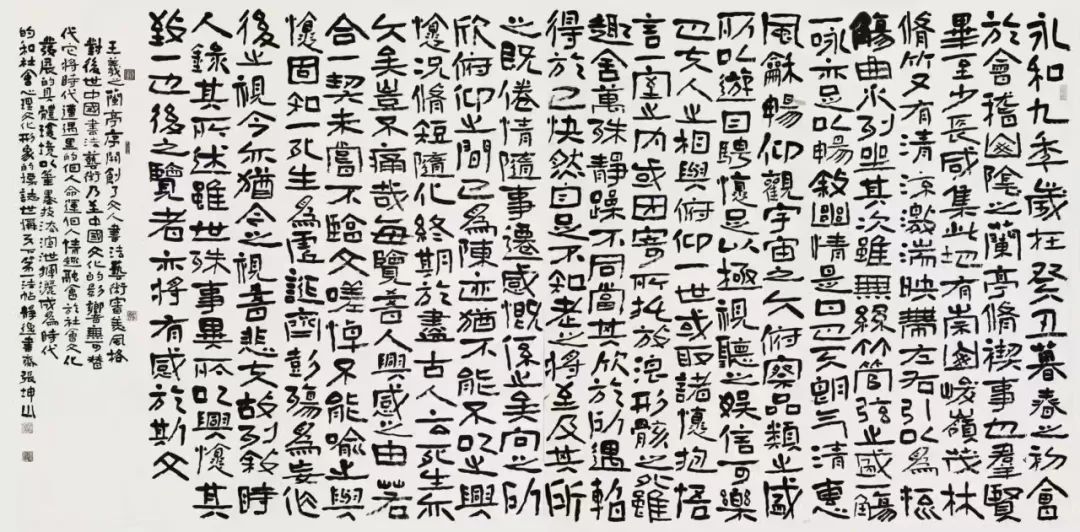 永和九年歲在癸丑暮春之初會
於會稽山陰之蘭亭脩禊事也羣賢
畢至少長咸集此地有崇山峻嶺茂林
脩竹又有清流激湍映帶左右引以為流
觴曲水列坐其次雖無絲竹管弦之盛一觴
一咏亦足以暢敘幽情是日也天朗气清惠
風龢暢仰觀宇宙之大俯察品類之盛
所以遊目騁懷足以極視聽之娛信可樂
也夫人之相與俯仰一世或取諸懷抱悟
言一室之內或因寄所託放浪形骸之外雖
趣舍萬殊靜躁不同當其欣於所遇暫
得於己快然自足不知老之將至及其所
之既倦情隨事遷感慨係之矣向之所
欣俯仰之間已為陳迹猶不能不以之興
懷況脩短隨化終期於盡古人云死生亦
大矣豈不痛哉每覽昔人興感之由若
合一契未嘗不臨文嗟悼不能喻之與
懷固知一死生為虛誕齊彭殤為妄作
後之視今亦猶今之視昔悲夫故列敘時
人錄其所述雖世殊事異所以興懷其
致一也後之覽者亦將有感於斯文
王羲之蘭亭序開創了文人書法藝術審美風格
對後世中國書法藝術乃至中國文化的影響無可替
代它將時代遭遇里的個人命運個人情趣融會於社會文化
發展的具體環境以筆墨技法渲泄揮灑成為時代
的和社會心理文化形象的標誌世稱天下第一法帖靜逸書齋張坤山